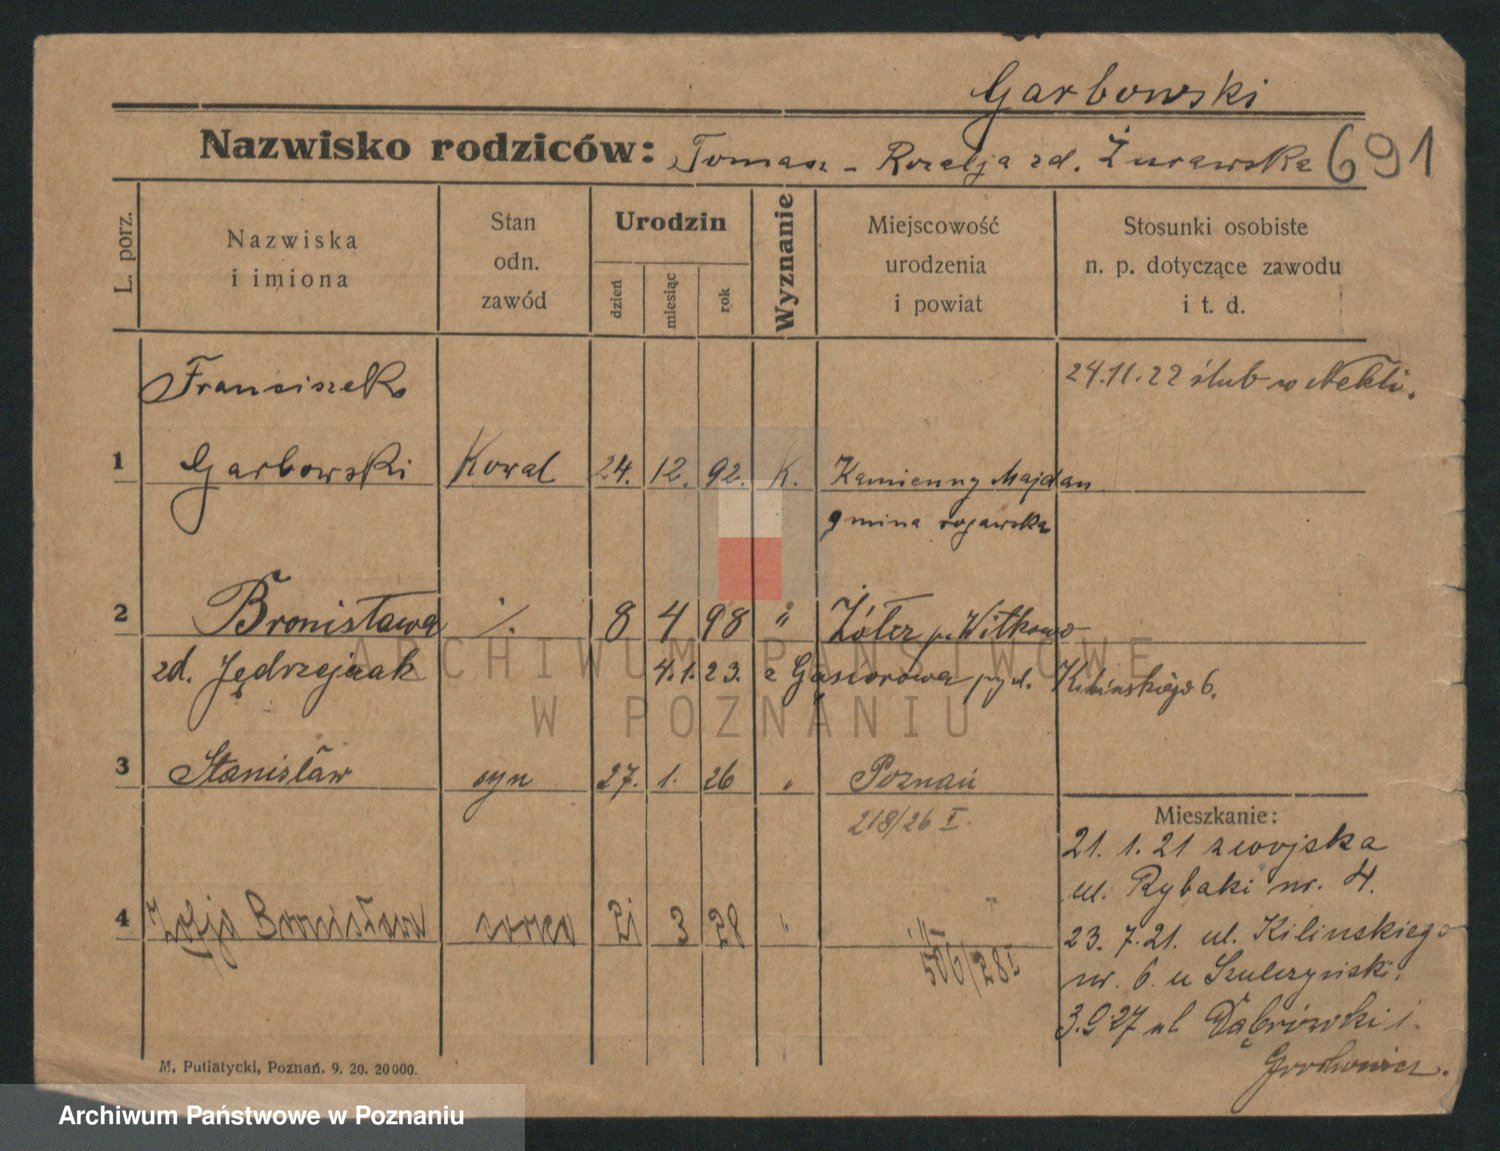 Garbowski
Nazwisko rodziców: Tomasz - Rozalja zd. Żurawska 691
L. porz.
Nazwiska
i imiona
Stan
odn.
zawód
Urodzin
dzień
miesiąc
rok
Wyznanie
Miejscowość
urodzenia
i powiat
Stosunki osobiste
n. p. dotyczące zawodu
i t. d.
Franciszek 24.11.22 ślub w Nekli.
1 Garbowski Kowal 24. 12. 92. K. Kamienny Majdan
gmina rojawska
2 Bronisława ·/. 8 4 98 " Żółcz p. Witkowo
zd. Jędrzejczak 4.1.23. z Gąsiorowa Kilińskiego 6.
3 Stanisław syn 27. 1. 26 " Poznań
218/26 I.
Mieszkanie:
21. 1. 21 z wojska
ul. Rybaki nr. 4.
4 Zofja Bronisława córka 21 3 28 " "
506/28 I
23. 7. 21. ul. Kilinskiego
nr. 6. u Szulczynski.
3.9.27 ul Dąbrówki 1.
M. Putiatycki, Poznań. 9. 20. 20000.
ARCHIWUM PAŃSTWOWE
W POZNANIU
Archiwum Państwowe w Poznaniu